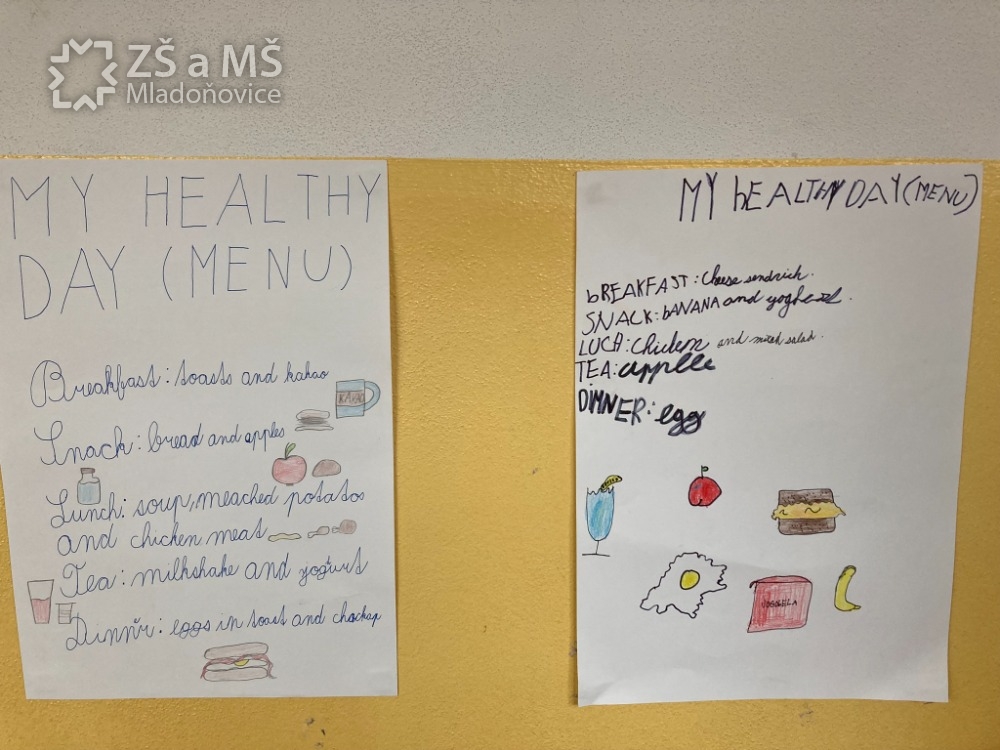 ZŠ a MŠ
Mladoňovice
MY HEALTHY
DAY (MENU)
Breakfast: toasts and kakao
KAKAO
Snack: bread and apples
Lunch: soup, meached potatos
and chicken meat
Tea: milkshake and yogurt
Dinner: eggs in toast and
MY hEALTHY DAY (MENU)
bREAKFAST: cheese sendrich.
SNACK: bANANA and
LUCH: chicken and salad.
TEA: applle
DIMNER: egg